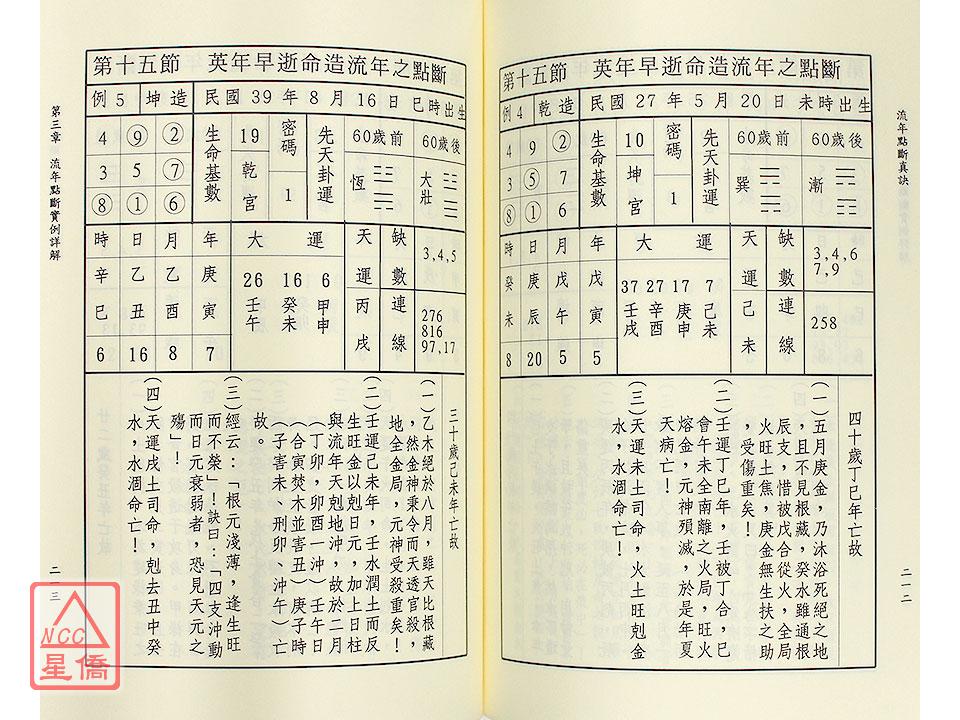 流年點斷真訣
二一二
第十五節 英年早逝命造流年之點斷
例4 乾造 民國27年5月20日未時出生
4 9 ②
3 ⑤ 7
⑧ ① 6
生命基數
10
坤宮
密碼
1
先天卦運
60歲前
巽
60歲後
漸
時 日 月 年
癸 庚 戊 戊
未 辰 午 寅
8 20 5 5
大運
37 27 17 7
壬戌 辛酉 庚申 己未
天運己未
缺數連線
3,4,6
7,9
258
四十歲丁巳年亡故
(一)五月庚金,乃沐浴死絕之地
,且不見根藏,癸水雖通根
辰支,惜被戊合從火,全局
火旺土焦,庚金無生扶之助
,受傷重矣!
(二)壬運丁巳年,壬被丁合,巳
會午未全南離之火局,旺火
熔金,元神殞滅,於是年夏
天病亡!
(三)天運未土司命,火土旺剋金
水,水涸命亡!
第三章 流年點斷實例詳解
二一三
第十五節 英年早逝命造流年之點斷
例5 坤造 民國39年8月16日巳時出生
4 ⑨ ②
3 5 ⑦
⑧ ① ⑥
生命基數
19
乾宮
密碼
1
先天卦運
60歲前
恆
60歲後
大壯
時 日 月 年
辛 乙 乙 庚
巳 丑 酉 寅
6 16 8 7
大運
26 16 6
壬午 癸未 甲申
天運丙戌
缺數連線
3,4,5
276
816
97,17
三十歲己未年亡故
(一)乙木絕於八月,雖天比根藏
,然金神秉令而天透官殺,
地全金局,元神受殺重矣!
(二)壬運己未年,壬水潤土而反
生旺金以剋日元,加上日柱
與流年天剋地沖,故於二月
(丁卯,卯酉一沖)壬午日
(合寅焚木並害丑)庚子時
(子害未、刑卯、沖午)亡
故。
(三)經云:「根元淺薄,逢生旺
而不榮」!訣曰:「四支沖動
而日元衰弱者,恐見天元之
殤」!
(四)天運戌土司命,剋去丑中癸
水,水涸命亡!
NCC
星僑